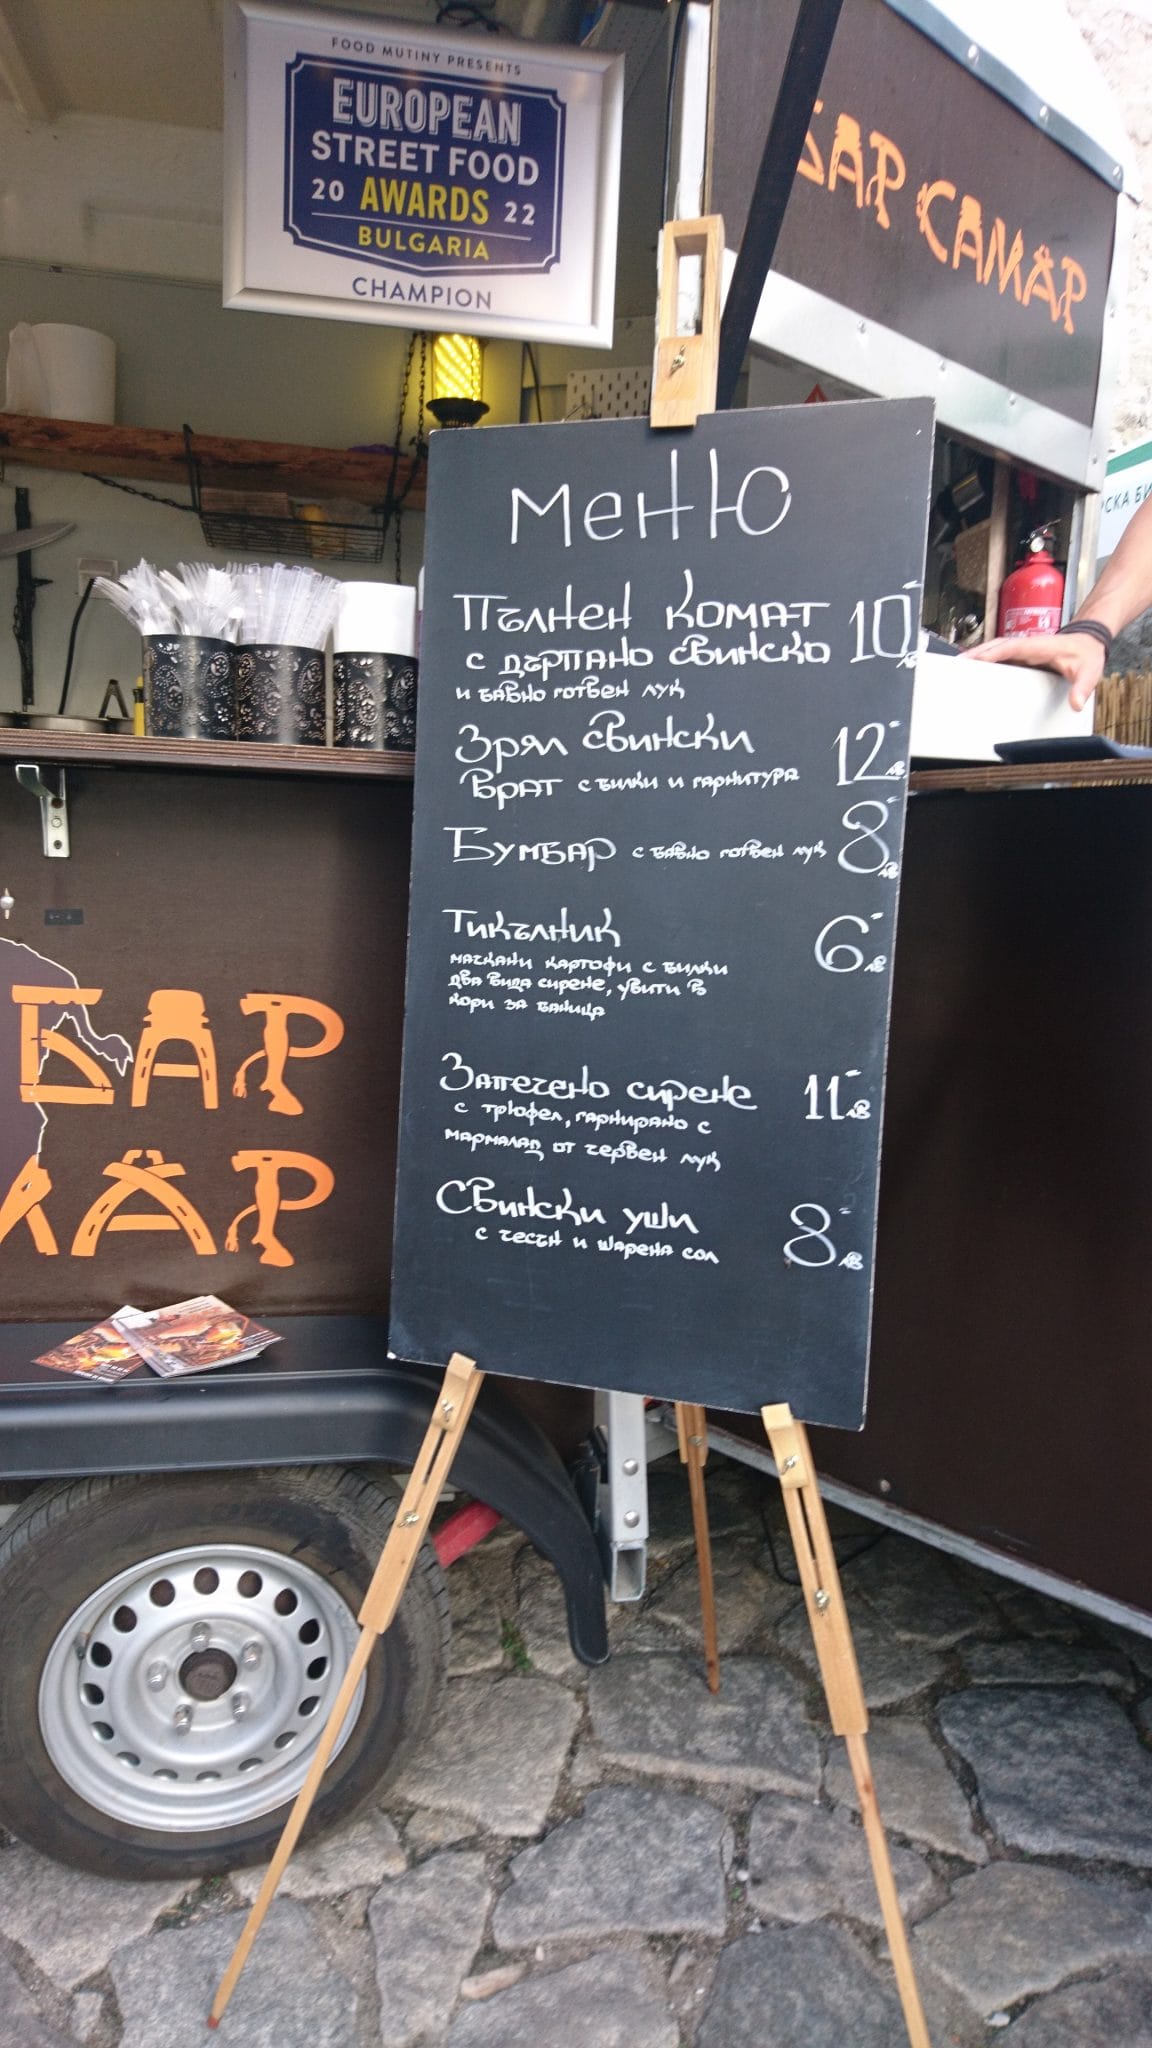 FOOD MUTINY PRESENTS
EUROPEAN
STREET FOOD
20 AWARDS 22
BULGARIA
CHAMPION
БАР САМАР
СКА БИ
Меню
Пълнен комат 10-лв
с дърпано свинско
и бавно готвен лук
Зрял свински 12-лв
врат с билки и гарнитура
Бумбар с бавно готвен лук 8-лв
Тикълник 6-лв
мачкани картофи с билки
два вида сирене, увити в
кори за баница
Запечено сирене 11-лв
с трюфел, гарнирано с
мармалад от червен лук
Свински уши 8-лв
с чесън и шарена сол
БАР
МАР